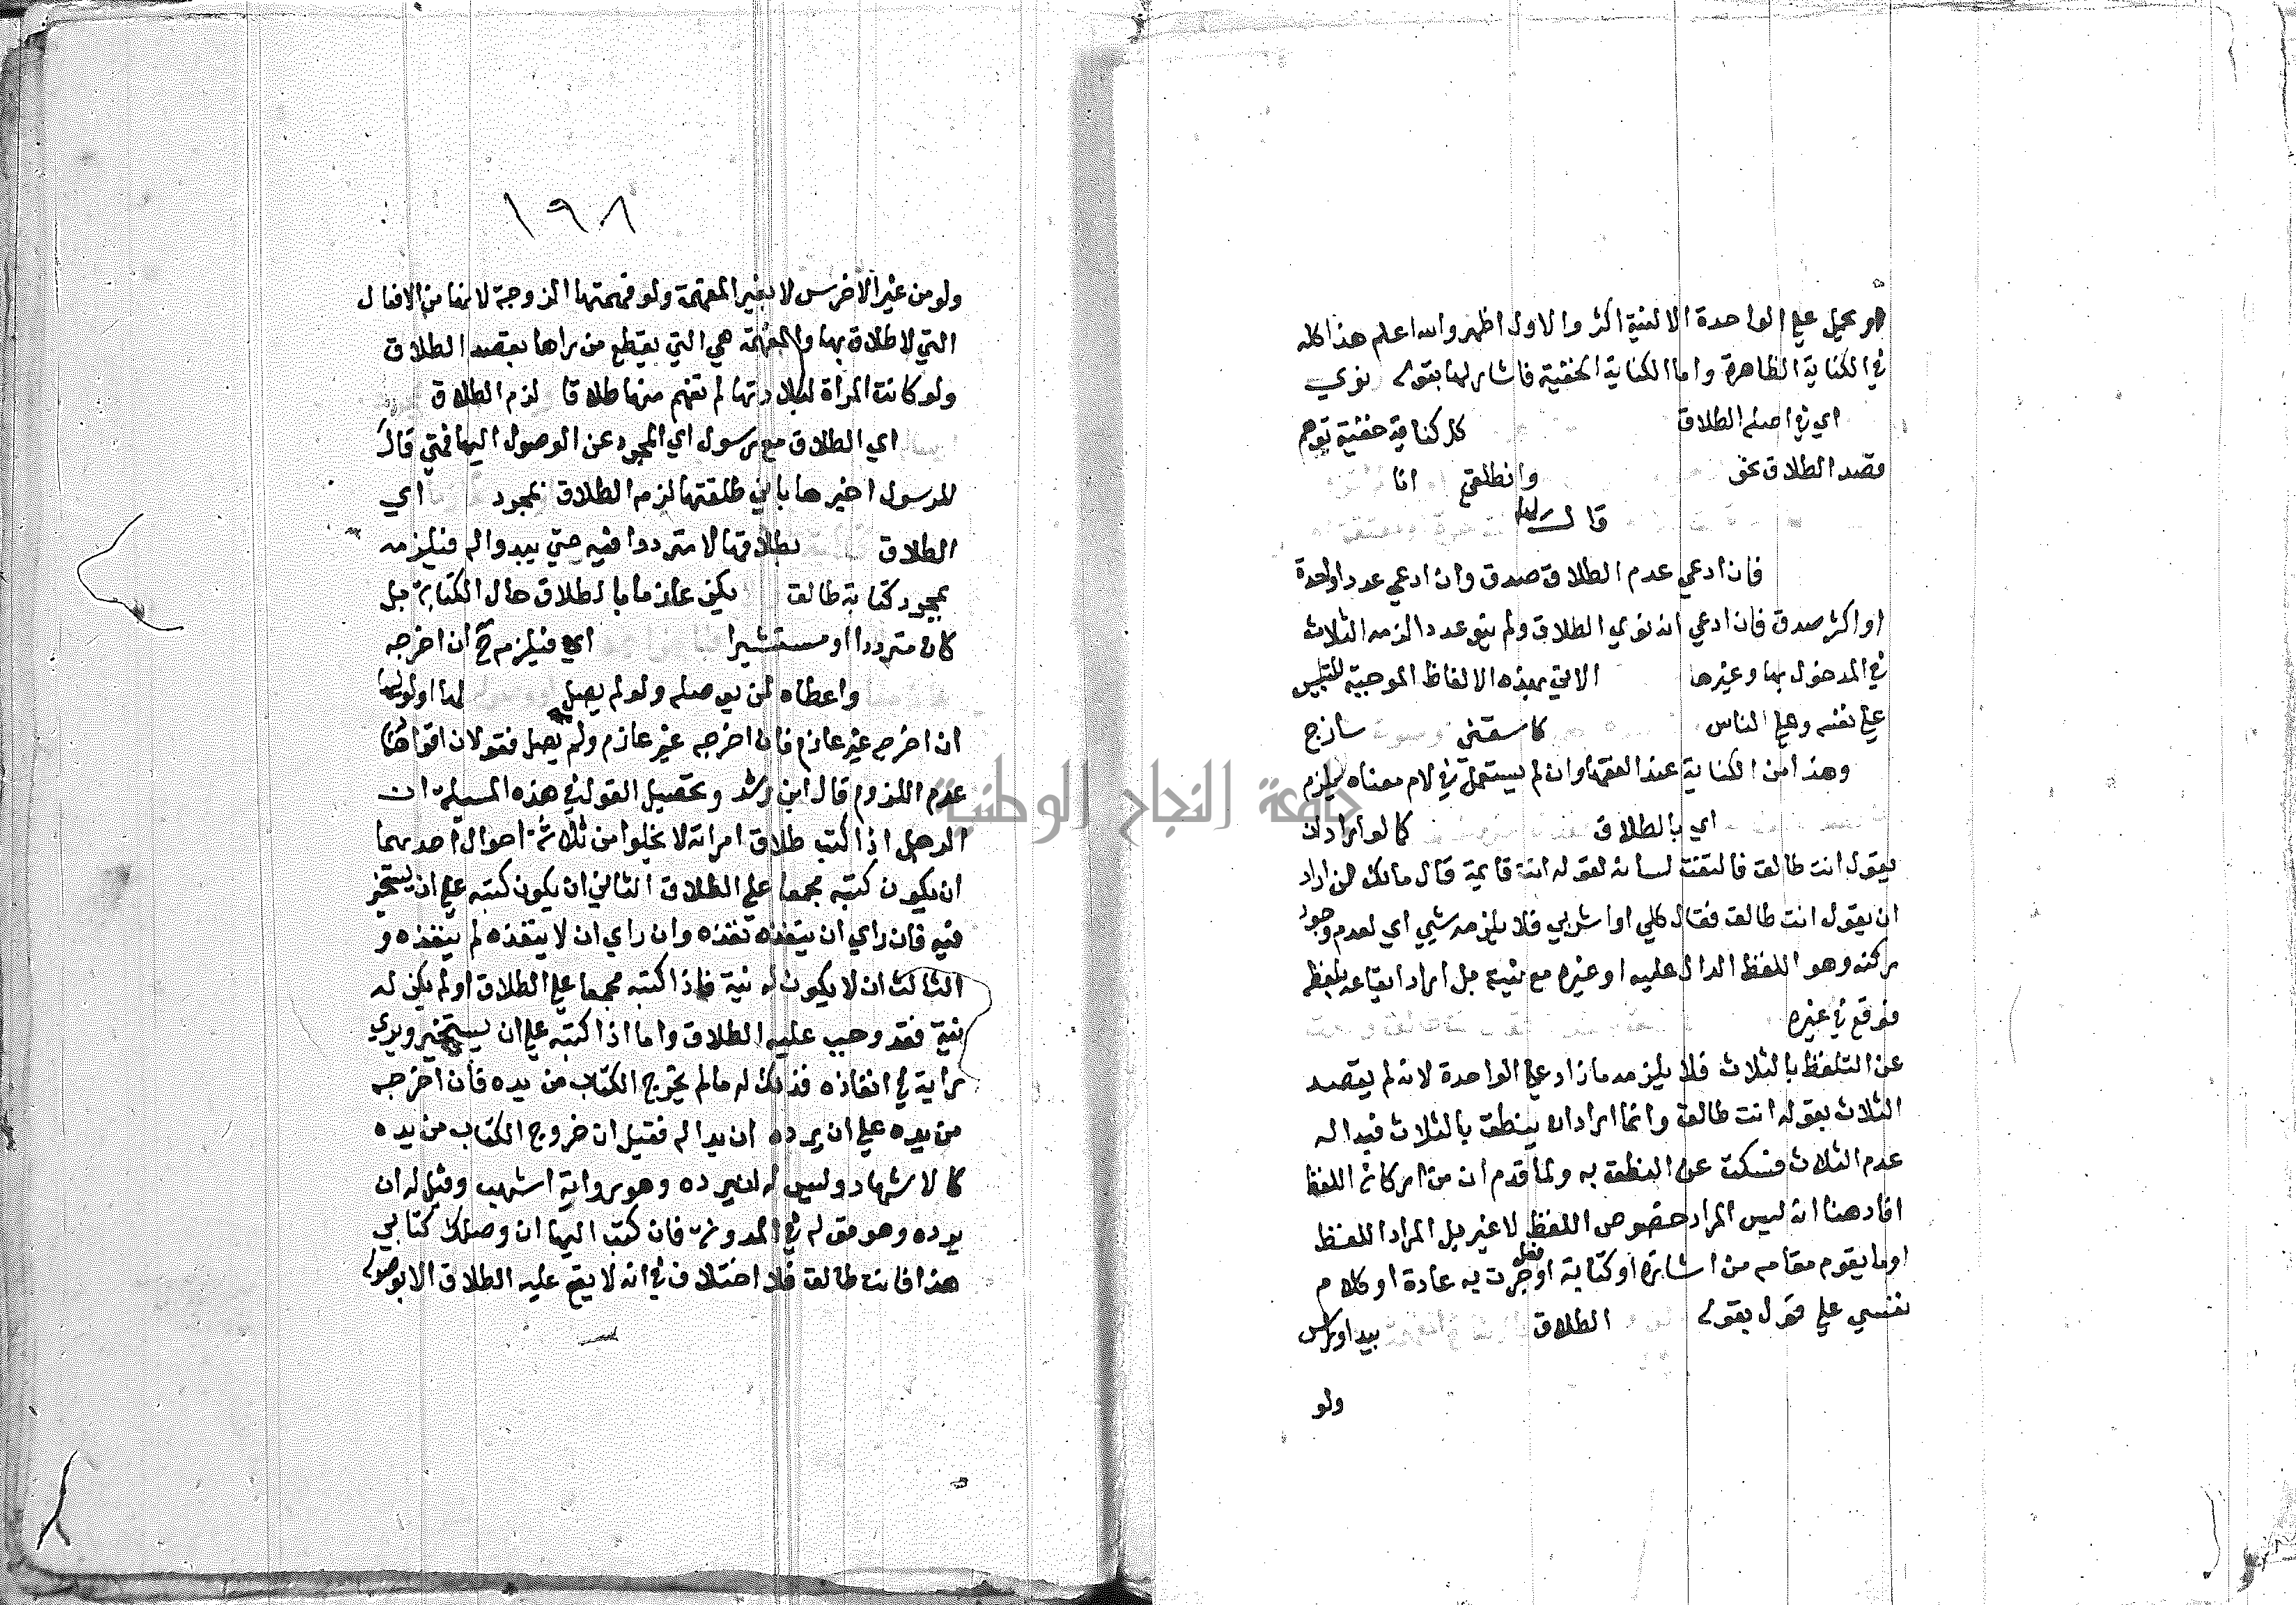 هو يحمل علي الواحدة الا لنية اكثر والاول اظهر والله اعلم هذا كله
في الكناية الظاهرة واما الكناية الخفية فاشار لها بقوله نوي
اي في اصل الطلاق كل كناية خفية توهم
قصد الطلاق نحو وانطلقي انا
قال
فان ادعي عدم الطلاق صدق وان ادعي عددا واحدة
او اكثر صدق فان ادعي انه نوي الطلاق ولم ينو عددا لزمه الثلاث
في المدخول بها وغيرها الاتي بهذه الالفاظ الموجبة للتلبيس
علي نفسه وعلي الناس كاسقني ساذج
وهذا من الكناية عند الفقها وان لم يستعمل في لازم معناه يلزم
اي بالطلاق كما لو اراد ان
يقول انت طالق فالتفت لسانه لقوله انت قايمة قال مالك من اراد
ان يقول انت طالق فقال كلي او اشربي فلا يلزمه شي اي لعدم وجود
ركنه وهو اللفظ الدال عليه او غيره مع نيته بل اراد ايقاعه بلفظ
فوقع في غيره
عن التلفظ بالثلاث فلا يلزمه ما زاد علي الواحدة لانه لم يقصد
الثلاث بقوله انت طالق وانما اراد ان ينطق بالثلاث فبدا له
عدم الثلاث فسكت عن النطق به ولما قدم ان من اركانه اللفظ
افاد هنا انه ليس المراد خصوص اللفظ لا غير بل المراد اللفظ
او ما يقوم مقامه من اشارة او كتابة او فعل جرت به عادة او كلام
نفسي علي قول بقوله الطلاق بيد او راس
ولو
١٩٨
ولو من غير الاخرس لا بغير المفهمة ولو فهمتها الزوجة لانها من الافعال
التي لا طلاق بها والمفهمة هي التي يقطع من راها بقصد الطلاق
ولو كانت المراة لبلادتها لم تفهم منها طلاقا لزم الطلاق
اي الطلاق مع رسول اي المجرد عن الوصول اليها فمتي قال
للرسول اخبرها باني طلقتها لزمه الطلاق بمجرد اي
الطلاق بطلاقها لا مترددا فيه حتي يبدوا له فيلزمه
بمجرد كتابة طالق يكن عازما بالطلاق حال الكتابة بل
كان مترددا او مستشيرا اي فيلزمه ح ان اخرجه
واعطاه لمن يوصله ولو لم يصل لها او لوليها
ان اخرج غير عازم فان اخرجه غير عازم ولم يصل فقولان اقواهما
عدم اللزوم قال ابن رشد وتحصيل القول في هذه المسيلة ان
الرجل اذا كتب طلاق امراته لا يخلوا من ثلاثة احوال احدها
ان يكون كتبه مجمعا علي الطلاق الثاني ان يكون كتبه علي ان يستخير
فيه فان راي ان ينفذه نفذه وان راي ان لا ينفذه لم ينفذه و
الثالث ان لا يكون له نية فاذا كتبه مجمعا علي الطلاق او لم يكن له
نية فقد وجب عليه الطلاق واما اذا كتبه علي ان يستخير ويري
راية في انفاذه فذلك له ما لم يخرج الكتاب من يده فان اخرجه
من يده علي ان يرده ان بدا له فقيل ان خروج الكتاب من يده
كالاشهاد وليس له ان يرده وهو رواية اشهب وقيل له ان
يرده وهو قوله في المدونة فان كتب اليها ان وصلك كتابي
هذا فانت طالق فلا اختلاف في انه لا يقع عليه الطلاق الا بوصوله